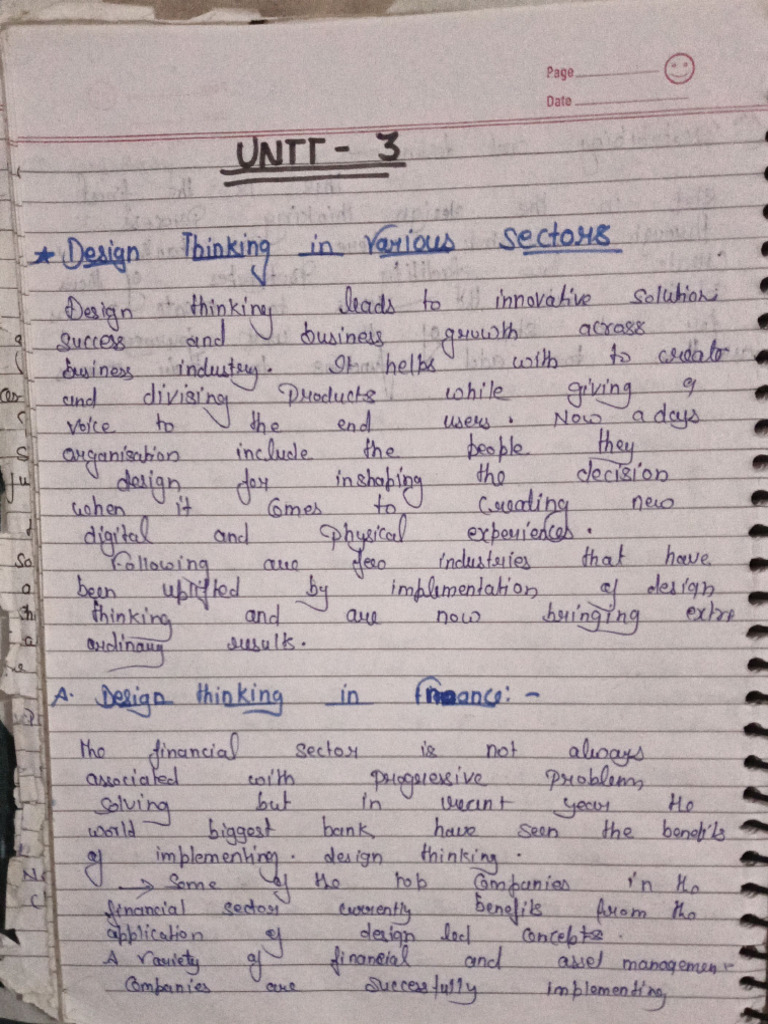 Page
Date
UNIT - 3
* Design Thinking in Various Sectors
Design thinking leads to innovative solution
success and business growth across
business industry. It helps with to create
and divising Products while giving a
voice to the end users. Now a days
organisation include the people they
design for inshaping the decision
when it Comes to Creating new
digital and Physical experiences.
Following are few industries that have
been uplifted by implmentation of design
thinking and are now bringing extra
ordinary results.
A. Design thinking in finance:-
The financial sector is not always
associated with progressive Problem
Solving but in recent year the
world biggest bank have seen the benefits
of implementing. design thinking.
→ Some of the top Companies in the
financial sector currently benefits from the
application of design led concepts.
A variety of financial and asset managemen-
Companies are successfully implementing